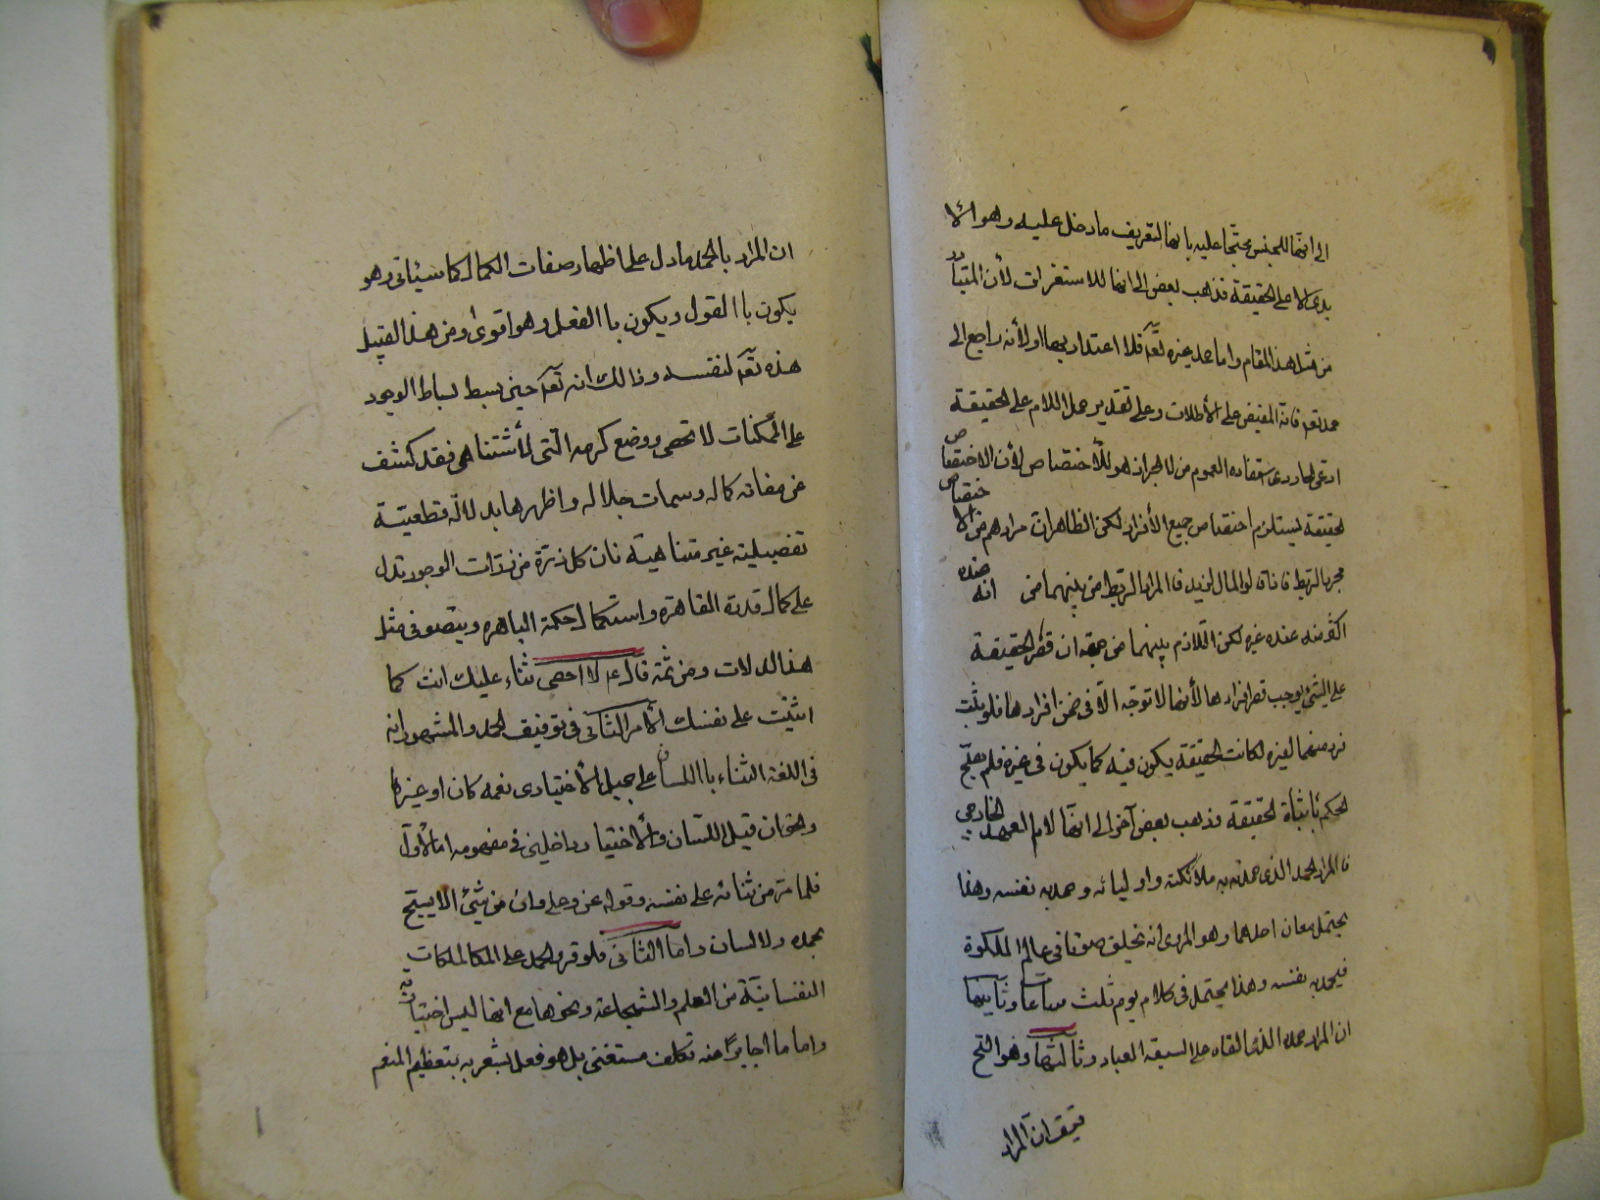 الى انها للجنس محتجا عليه بانها لتعريف ما دخل عليه وهو الا
يدل الا على الحقيقة فذهب بعض الى انها للاستغراق لأن المتبادر
من مثل هذا المقام واما حمد غيره تعه فلا اعتداد بها اولأنه راجع الى
حمد تعه فانه المفيض على الأطلاق وعلى تقدير حمل اللام على الحقيقة
العموم من هو للأختصاص لأن الاختصاص
لحقيقة يستلزم اختصاص جميع الأفراد لكن الظاهران مرادهم من الاختصاص
مجرد الربط المال لزيد فالمراد الربط من بينهما من انه
عنده غيره لكن التلازم بينهما من جهة ان قصر الحقيقة
على الشئ يوجب قصر افرادها لأنها لا توجد الّا فى ضمن افرادها فلو ثبت
فرد منهما لغيره لكانت الحقيقة يكون فيه كما يكون فى غيره فلم يصح
الحكم الحقيقة فذهب بعض آخر الى انها لام العهد الخارجى
فالمراد الحمد الذى حمدته به ملائكته واوليائه وحمد به نفسه وهذا
يحتمل معان احدهما وهو المروى انه تخليق صوتا فى عالم الملكوة
فيحمد به نفسه وهذا يحتمل فى كلام يوم ثلث ساعات وثانيها
ان المراد حمده الذى القاه على السنة العباد وثالثها وهو التح
قيق ان المراد
ان المراد بالحمد ما دل على اظهار صفات الكمال كما سيئاتى وهو
يكون باالقول ويكون باالفعل وهو اقوى ومن هذا القبيل
هذه تعه لنفسه وذالك انه تعه حين بسط بساط الوجود
على الممكنات لا تحصى ووضع كرمه الّتى لأتتناهى فقد كشف
عن صفات كماله وسمات جلاله واظهرها بدلالة قطعيّة
تفصيلية غير متناهية فان كل ذرّة من ذرّات الوجود تدل
على كمال قدرته القاهرة واستكمال حكمته الباهره ويتصو فى مثل
هذا لدلات ومن ثمّه قال ع م لا احصى ثناء عليك انت كما
اثنيت على نفسك الأمر الثانى فى توفيق لحمد والمشهور انه
فى اللغة الثناء باللسان على جميل الأختيارى نعمه كان او غيرها
قيل اللسان والأختيار داخلين فى مفهومه اما الأول
فلما مرّ من ثنائه على نفسه وقوله عز وجل وان من شئ الا يسبّح
بحمده ولا لسان واما الثانى فلو قوع الحمد على الملكات
النفسانيّة من العلم والشجاعة ونحوها مع انها ليس اختيارية
واما ما اجابوا عنه تكلف مستغنى بل هو فعل يشعر به بتعظيم المنعم